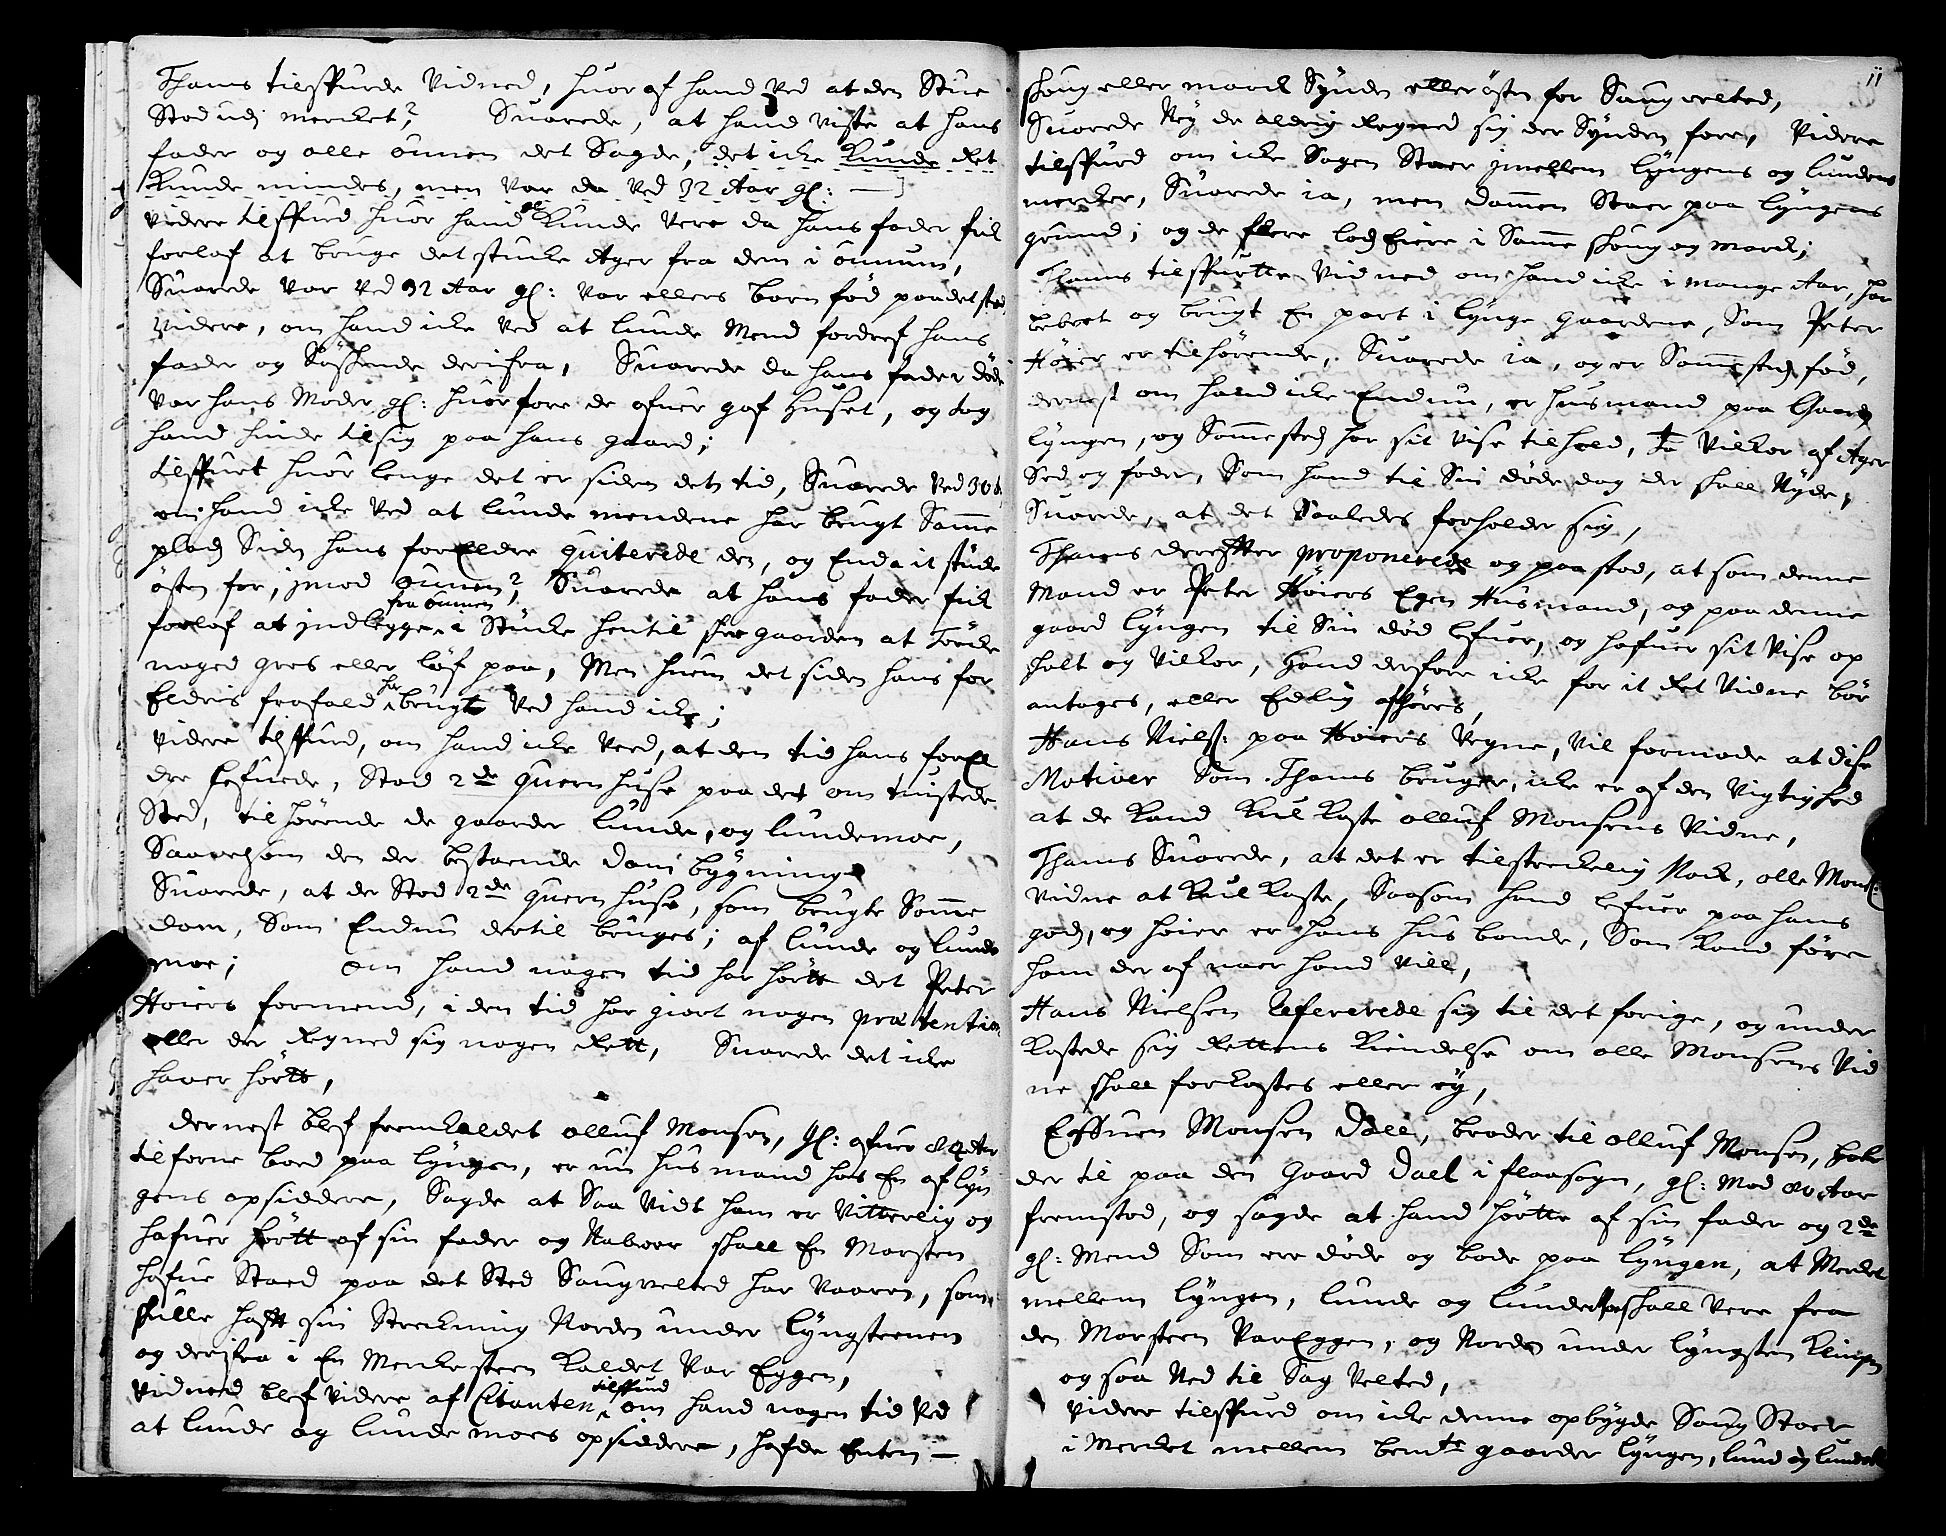 Thams tilspurde Vidned, huor af hand Ved at den Stue
Stod udj mercket? Suarede, at hand viste at hans
fader og alle önnen det Sagde, det icke kunde det
kunde mindes, men var da ved 32 Aar gl: —
videre tilspurd huor hand gl kunde vere da hans fader fick
forlof at bruge det stücke Ager fra dem i önnum,
Suarede var ved 32 Aar gl: var ellers barn fød paa det sted
Videre, om hand icke ved at Lunde Mend fordref hans
fader og Søskende derifra, Suarede da hans fader døde
var hans Moder gl: huorfore de ofuer gaf Huset, og tog
hand hinde til sig paa hans gaard;
tilspurt huor lenge det er siden den tid, Suarede ved 30
om hand icke ved at Lunde mendene har brugt Samme
plads Siden hans forEldre quiterede den, og End it stücke
østen for, jmod önnen? Suarede at hans fader fick
forlof at jndlegge fra önnen i Stücke hentil gaarden at tørcke
noged gres eller løf paa, Men huem det siden hans for
Eldris frafald har brugt ved hand icke;
videre tilspurd, om hand icke veed, at den tid hans forEl
dre lefuede, Stod 2de quernhuse paa det om tuistede
Sted, tilhørende de gaarder Lunde, og Lundemoe,
Saavelsom den der bestaaende dam bygning
Suarede, at der Stod 2de quernhuse, som brugte Samme
dam, Som Endnu dertil bruges; af Lunde og Lunde
moe; Om hand nogen tid har hørt det Peter
Høiers formend, i den tid har giort nogen prætention
eller der Regned sig nogen Rett, Suarede det icke
haver hørt,
dernest blef fremkaldet Olluf Monsen, gl: ofuer 82 Aar
tilforne boed paa Lyngen, er nu husmand hos En af Lyn
gens opsiddere, Sagde at Saa vidt ham er Vitterlig og
hafuer hørtt af sin fader og Naboer skall En Marsteen
hafue Staaed paa det Sted Saugveltet har vaaren, som
skulle haft sin Streckning Norden under Lyngsteenen
og derifra i En Mercke steen kaldet Var Eggen,
Vidned blef videre af Citanten tilspurd om hand nogen tid ved
at Lunde og Lunde moes opsiddere, hafde Enten —
11
skoug eller marck Synden eller østen for Saugvelted,
Suarede Ney de aldrig Regned sig der Synden fore, videre
tilspurd om icke Sagen Staar jmellem Lyngens og Lundens
mercker, Suarede ia, men dammen Staar paa Lyngens
grund; og de flere lodEiere i Samme skoug og marck;
Thams tilspurtte Vidned om hand icke i mange Aar, har
beboet og brugt En part i Lynge gaardene, Som Peter
Høier er tilhørende, Suarede ia, og er Sammesteds fød,
dernest om hand icke Endnu, er husmand paa Gaard
Lyngen, og Sammesteds har sit vise tilhold, vilkor af Ager
Sed og foder, Som hand til Sin døde dag der skall Nyde,
Suarede, at det Saaledes forholder sig,
Thams derefter proponerede og paastod, at som denne
Mand er Peter Høiers Egen Husmand, og paa denne
gaard Lyngen til Sin død lefuer, og hafuer sit vise op
holt og vilkor, Hand derfore icke for it Ret Vidne bør
antages, eller Edlig afhøres,
Hans Niels: paa Høiers Vegne, vil formode at dise
Motiver Som Thams bruger, icke er af den Vigtighed
at de kand kulkaste Olluf Monsens Vidne,
Thams Suarede, at det er tilstreckelig Nock, Olle Mons:
Vidne at kulkaste, Saasom hand lefuer paa hans
gods, og Høier er hans husbonde, Som kand føre
ham der af naar hand vill,
Hans Nielsen Refererede sig til det forige, og under
kastede sig Rettens kiendelse om Olle Monsens Vid
ne skall forkastes eller ey,
Effuen Monsen Dall, broder til Olluf Monsen,
der til paa den Gaard Dall i flaasogn, gl: Mod 80 Aar
fremstod, og sagde at hand hørtte af sin fader og 2de
gl: Mend Som ere døde og bode paa Lyngen, at Mercket
mellem Lyngen, Lunde og Lundemoe skall vere fra
den Marsteen VarEggen, og Norden under Lyngsten
og saa Ned til Sag velted,
videre tilspurd om icke denne opbygde Saug Staar
i Mercket mellem bemte gaarder Lyngen, Lund og